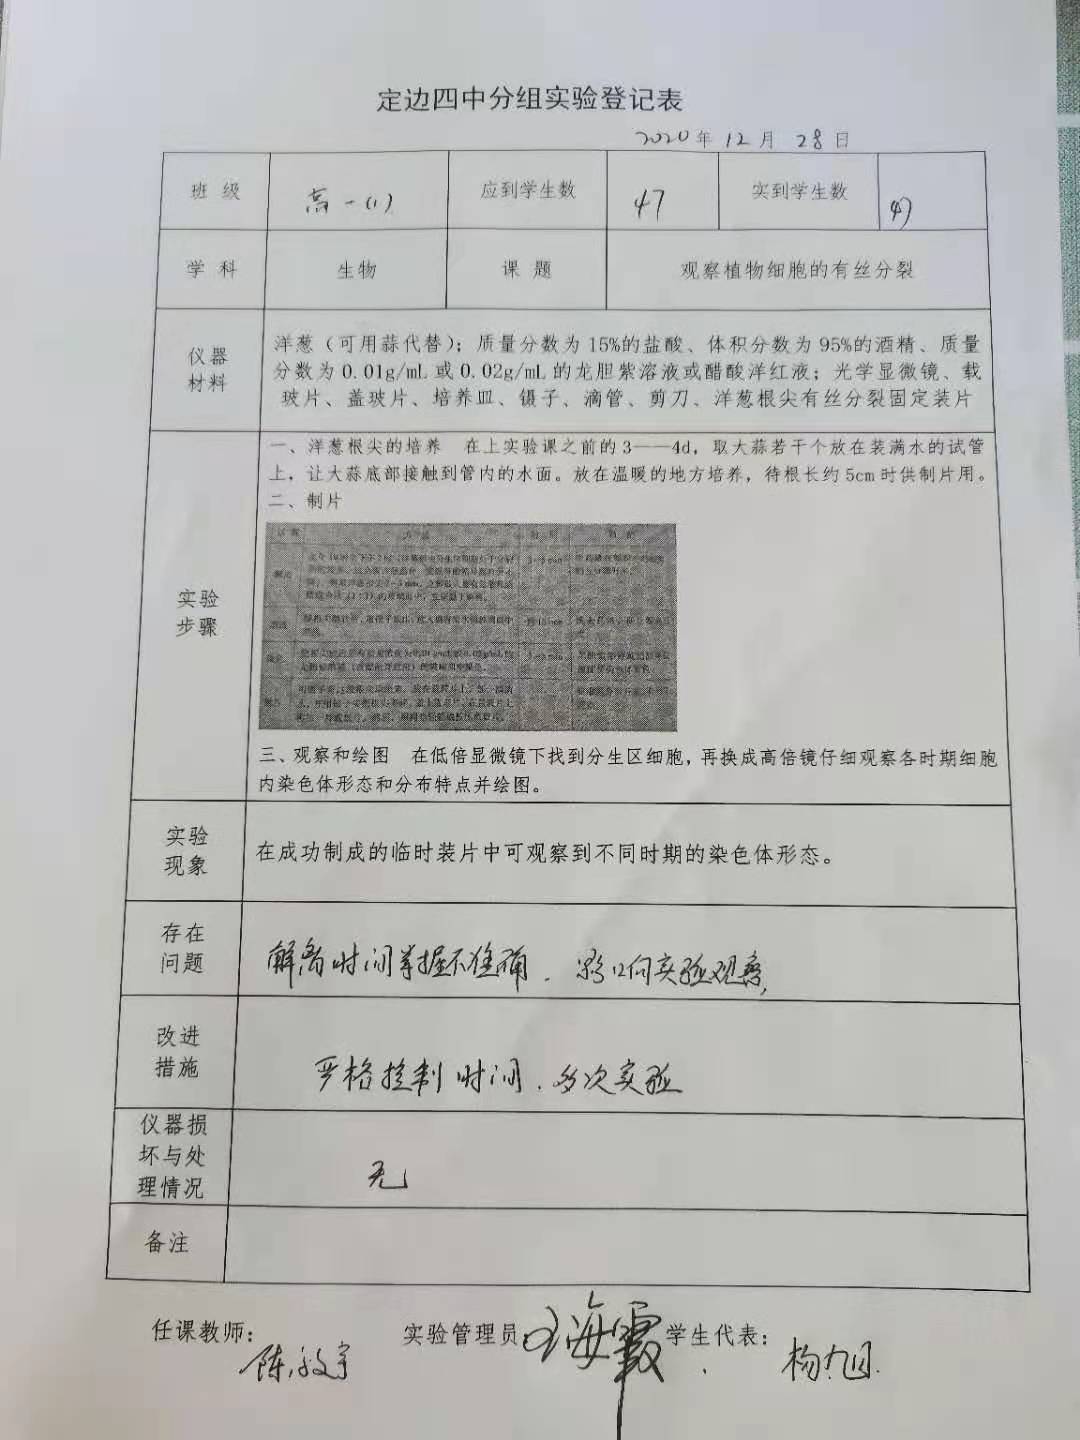 定边四中分组实验登记表
2020年12月28日
班 级 高一(1) 应到学生数 47 实到学生数 47
学 科 生物 课 题 观察植物细胞的有丝分裂
仪器
材料
洋葱（可用蒜代替）；质量分数为15%的盐酸、体积分数为95%的酒精、质量
分数为0.01g/mL或0.02g/mL的龙胆紫溶液或醋酸洋红液；光学显微镜、载
玻片、盖玻片、培养皿、镊子、滴管、剪刀、洋葱根尖有丝分裂固定装片
实验
步骤
一、洋葱根尖的培养 在上实验课之前的3——4d，取大蒜若干个放在装满水的试管
上，让大蒜底部接触到管内的水面。放在温暖的地方培养，待根长约5cm时供制片用。
二、制片
三、观察和绘图 在低倍显微镜下找到分生区细胞，再换成高倍镜仔细观察各时期细胞
内染色体形态和分布特点并绘图。
实验
现象
在成功制成的临时装片中可观察到不同时期的染色体形态。
存在
问题
解离时间掌握不准确．影响实验观察，
改进
措施
严格控制时间．多次实验
仪器损
坏与处
理情况
无
备注
任课教师： 陈 宇 实验管理员 王海霞 学生代表： 杨旭